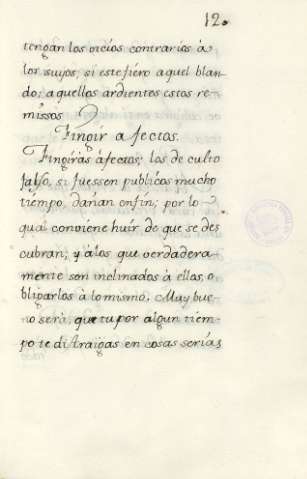 12.
tengan los vicios contrarios â
los suyos, si este fiero aquel blan-
do; a quellos ardientes estos re-
missos
Fingir a fectos.
Fingiràs âfectos; los de culto
falso, si fuessen publicos mucho
tiempo, dañan enfin; por lo
qual conviene huir de que se des
cubran, y álos que verdadera-
mente son inclinados à ellos, o-
bligarlos à lo mismo. Muy bue-
no serà, que tu por algun tiem-
po te distraigas en cosas serias,